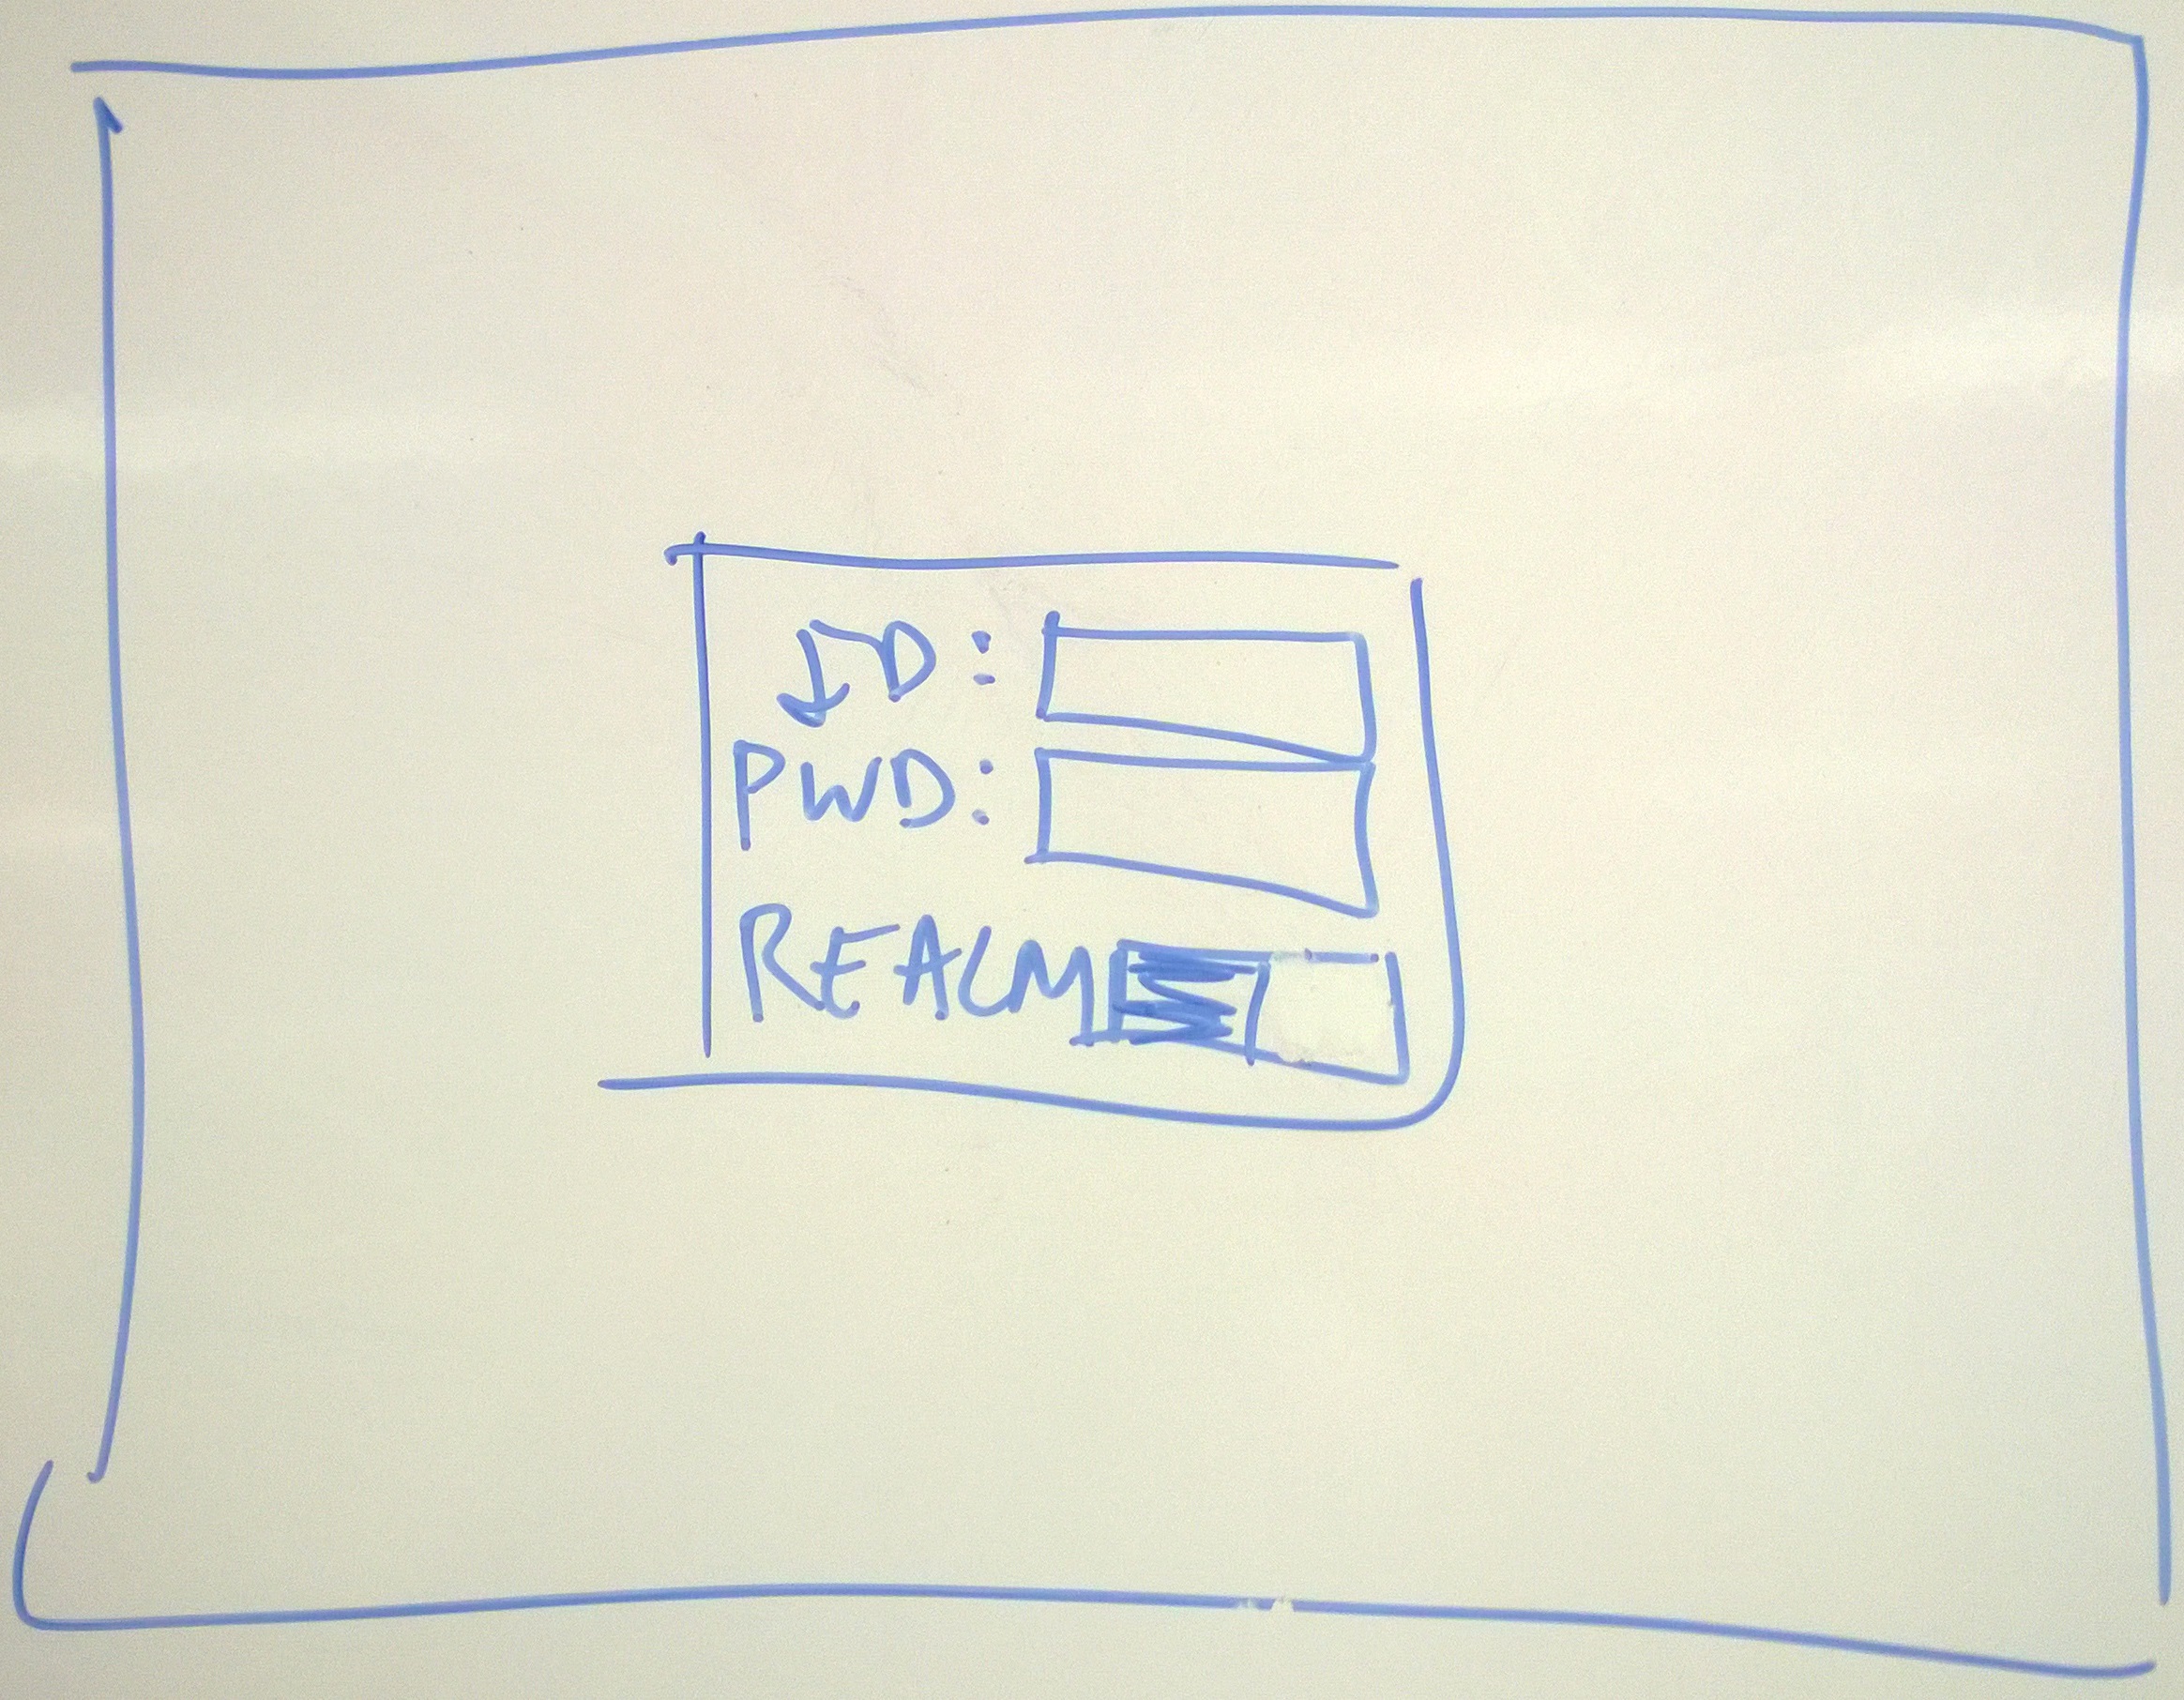 ID:
PWD:
REALM